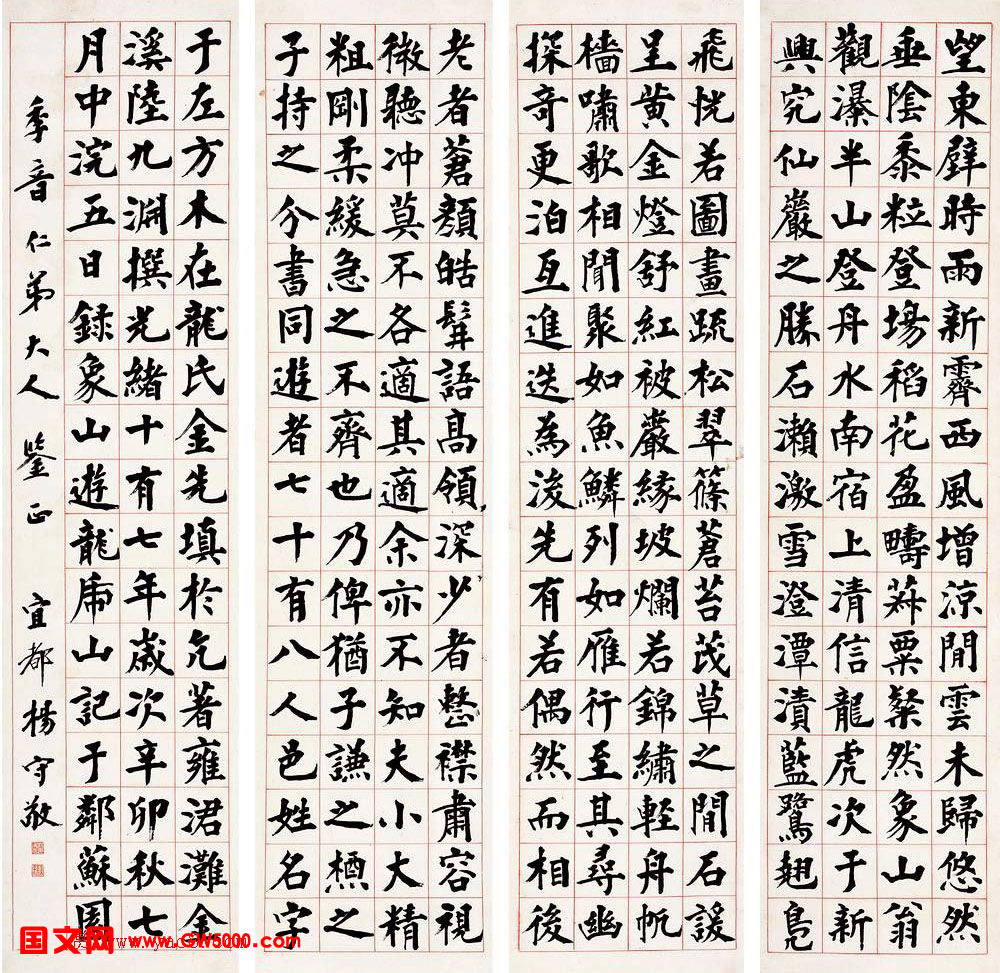 望東壁時雨新霽西風增涼閒雲未歸悠然
垂陰黍粒登場稻花盈疇菽粟粲然象山翁
觀瀑半山登舟水南宿上清信龍虎次于新
興究仙巖之勝石瀨激雪澄潭漬藍鷺翹鳧
飛恍若圖畫疏松翠篠蒼苔茂草之間石諼
呈黄金燈舒紅被巖緣坡爛若錦繡輕舟帆
檣嘯歌相聞聚如魚鱗列如雁行至其尋幽
探奇更泊互進迭為後先有若偶然而相後
老者蒼顏皓髯語高領深少者整襟肅容視
微聽冲莫不各適其適余亦不知夫小大精
粗剛柔緩急之不齊也乃俾猶子謙之槱之
子持之分書同遊者七十有八人邑姓名字
于左方木在龍氏金先填於亢著雍涒灘金
溪陸九淵撰光緒十有七年歲次辛卯秋七
月中浣五日録象山遊龍虎山記于鄰蘇園
季音仁弟大人鑒正 宜都楊守敬
国文网 www.GW5000.com